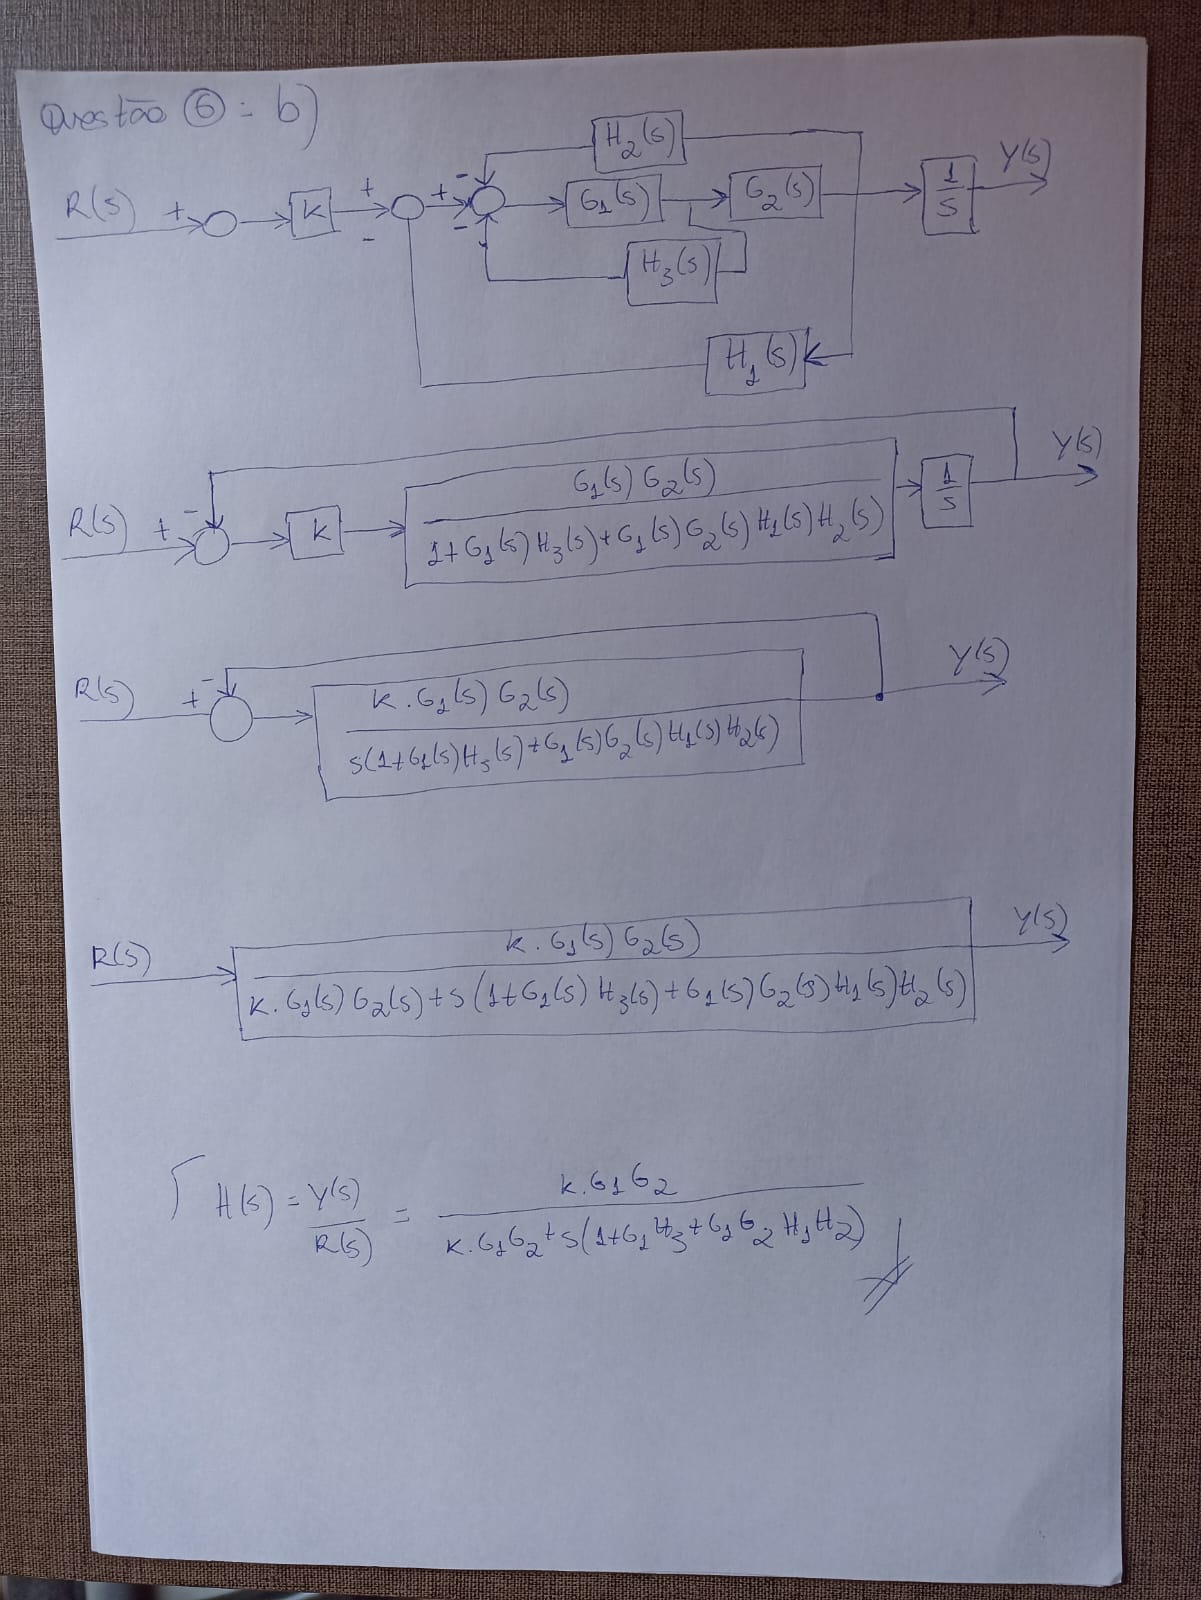 Questão 6 = b)
H2(s)
R(s) + K + - + - - G1(s) G2(s) 1/s Y(s)
H3(s)
H1(s)
R(s) + - K G1(s) G2(s) / 1+G1(s)H3(s)+G1(s)G2(s)H1(s)H2(s) 1/s Y(s)
R(s) + - K.G1(s)G2(s) / s(1+G1(s)H3(s)+G1(s)G2(s)H1(s)H2(s) Y(s)
R(s) K.G1(s)G2(s) / K.G1(s)G2(s)+s(1+G1(s)H3(s)+G1(s)G2(s)H1(s)H2(s) Y(s)
H(s) = Y(s)/R(s) = K.G1G2 / K.G1G2+s(1+G1H3+G1G2H1H2)